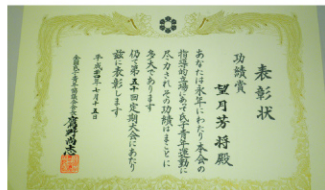 表彰状
功績賞
望月芳将殿
あなたは永年にわたり本会の
指導的立場にあって氏子青年運動に
尽力されその功績はまことに
多大であります
仍て第五十回定期大会にあたり
茲に表彰します
平成二十四年七月十五日